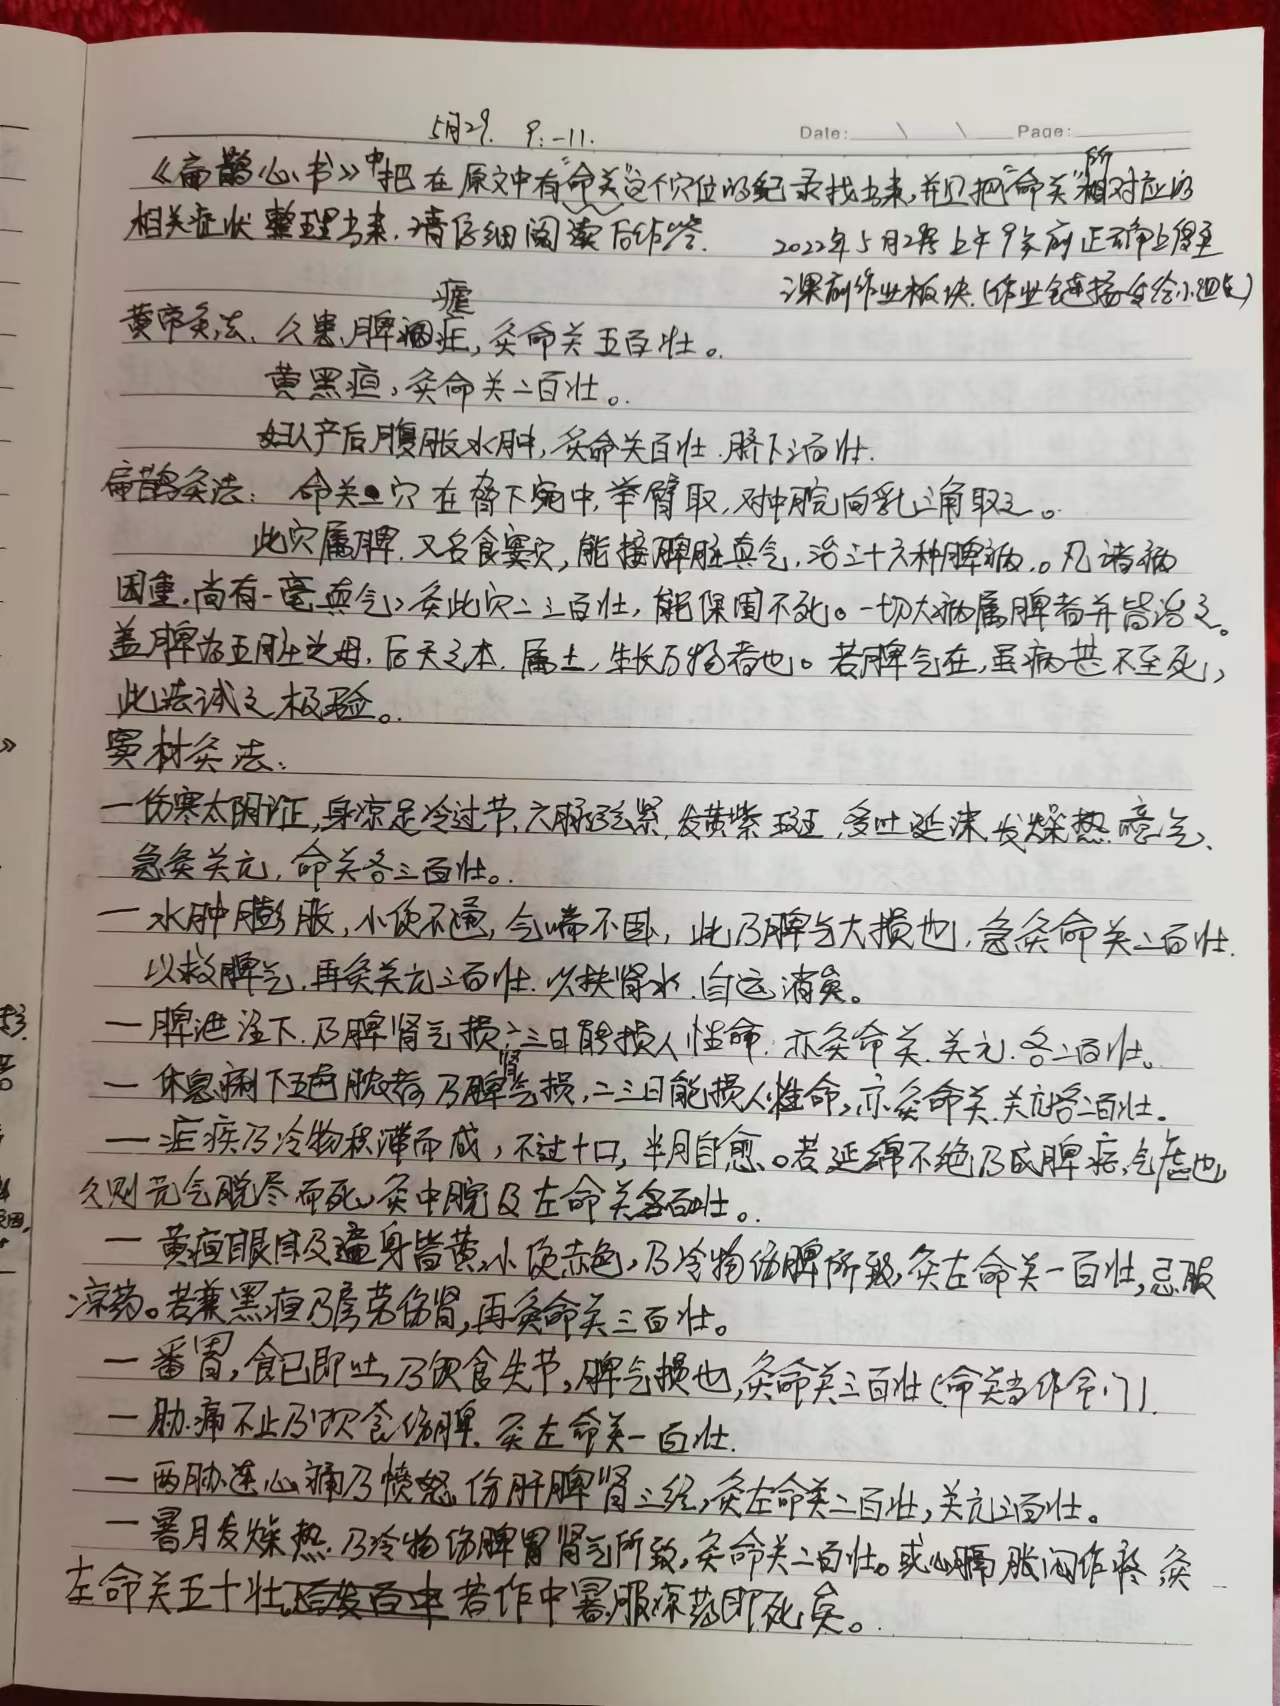 5月29. 9:-11.
Date: \ \ Page:
《扁鹊心书》中把在原文中有“命关”这个穴位的纪录找出来,并且把“命关”所相对应的
相关症状整理出来.请仔细阅读后作答. 2022年5月2号上午9点前
课前作业板块.(作业链接
黄帝灸法、久患脾疟,灸命关五百壮。
黄黑疸,灸命关二百壮。
妇人产后腹胀水肿,灸命关百壮.脐下三百壮.
扁鹊灸法: 命关二穴在胁下宛中,举臂取,对中脘向乳三角取之。
此穴属脾.又名食窦穴,能接脾脏真气,治三十六种脾病。凡诸病
困重,尚有一毫真气,灸此穴二三百壮,能保固不死。一切大病属脾者并皆治之。
盖脾为五脏之母,后天之本.属土,生长万物者也。若脾气在,虽病甚不至死,
此法试之极验。
窦材灸法:
一伤寒太阴证,身凉足冷过节,六脉弦紧,发黄紫斑,多吐涎沫,发燥热噫气、
急灸关元,命关各三百壮。
一水肿膨胀,小便不通,气喘不卧,此乃脾气大损也,急灸命关二百壮.
以救脾气,再灸关元三百壮.以扶肾水.自运消矣。
一脾泄注下.乃脾肾气损,二三日能损人性命.亦灸命关.关元.各二百壮。
一休息痢下五色脓者,乃脾肾气损,二三日能损人性命,亦灸命关.关元各二百壮.
一疟疾乃冷物积滞而成,不过十日,半月自愈。若延绵不绝乃成脾疟,气虚也,
久则元气脱尽而死,灸中脘及左命关各百壮。
一黄疸眼目及遍身皆黄,小便赤色,乃冷物伤脾所致,灸左命关一百壮,忌服
凉药。若兼黑疸乃房劳伤肾,再灸命关三百壮。
一番胃,食已即吐,乃饮食失节,脾气损也,灸命关三百壮(命关当作命门).
一胁痛不止乃饮食伤脾.灸左命关一百壮.
一两胁连心痛乃愤怒伤肝脾肾三经,灸左命关二百壮,关元三百壮。
一暑月发燥热.乃冷物伤脾胃肾气所致,灸命关二百壮。或心膈胀闷作疼,灸
左命关五十壮,百发百中若作中暑,服凉药即死矣。